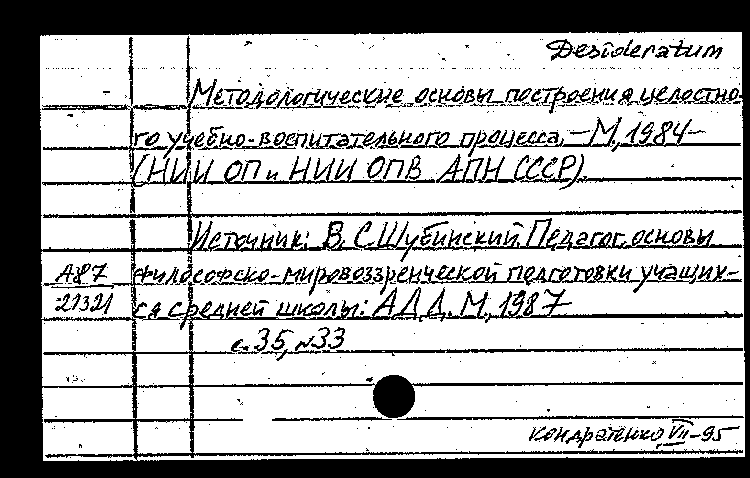 Desideratum
Методологические основы построения целостно-
го учебно-воспитательного процесса, – М., 1984 –
(НИИ ОП и НИИ ОПВ АПН СССР).
Источник: В. С. Шубинский. Педагог. основы
А87 философско-мировоззренческой подготовки учащих-
21321 ся средней школы: АДД. М., 1987
с. 35, №33
Кондратенко, VII-95